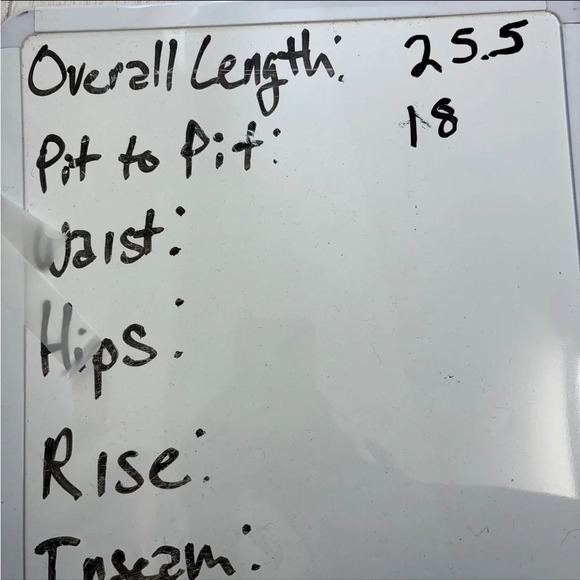 Overall Length: 25.5
Pit to Pit: 18
Waist:
Hips:
Rise:
Inseam: